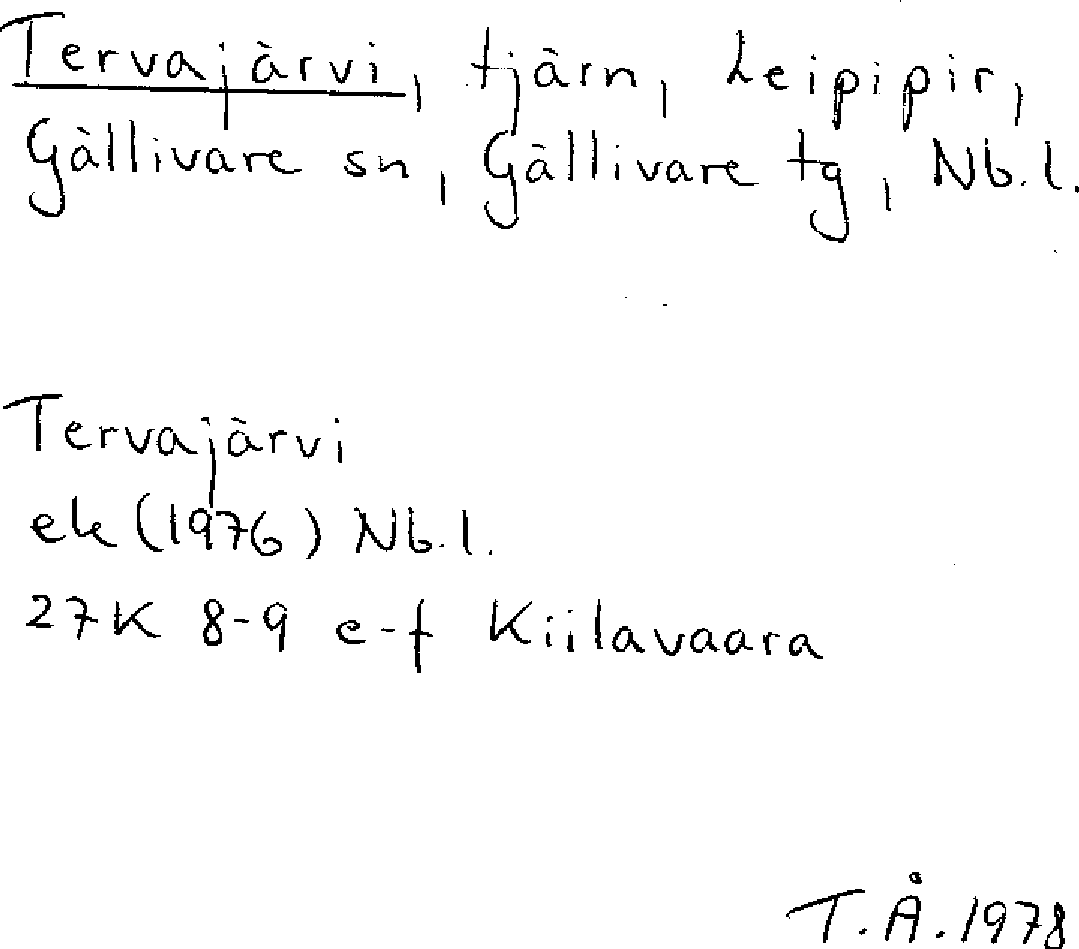 Tervajärvi, tjärn, Leipipir,
Gällivare sn, Gällivare tg, Nb.l.
Tervajärvi
ek (1976) Nb.l.
27K 8-9 e-f Kiilavaara
T.Å. 1978